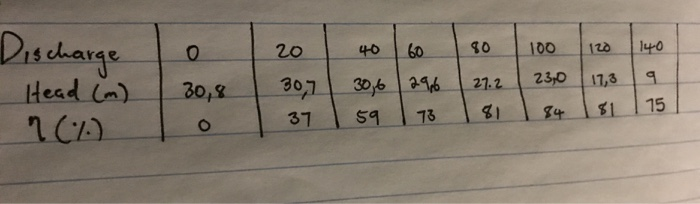 Discharge 0 20 40 60 80 100 120 140
Head (m) 30,8 30,7 30,6 29,6 27.2 23,0 17,3 9
η (%) 0 37 59 73 81 84 81 75